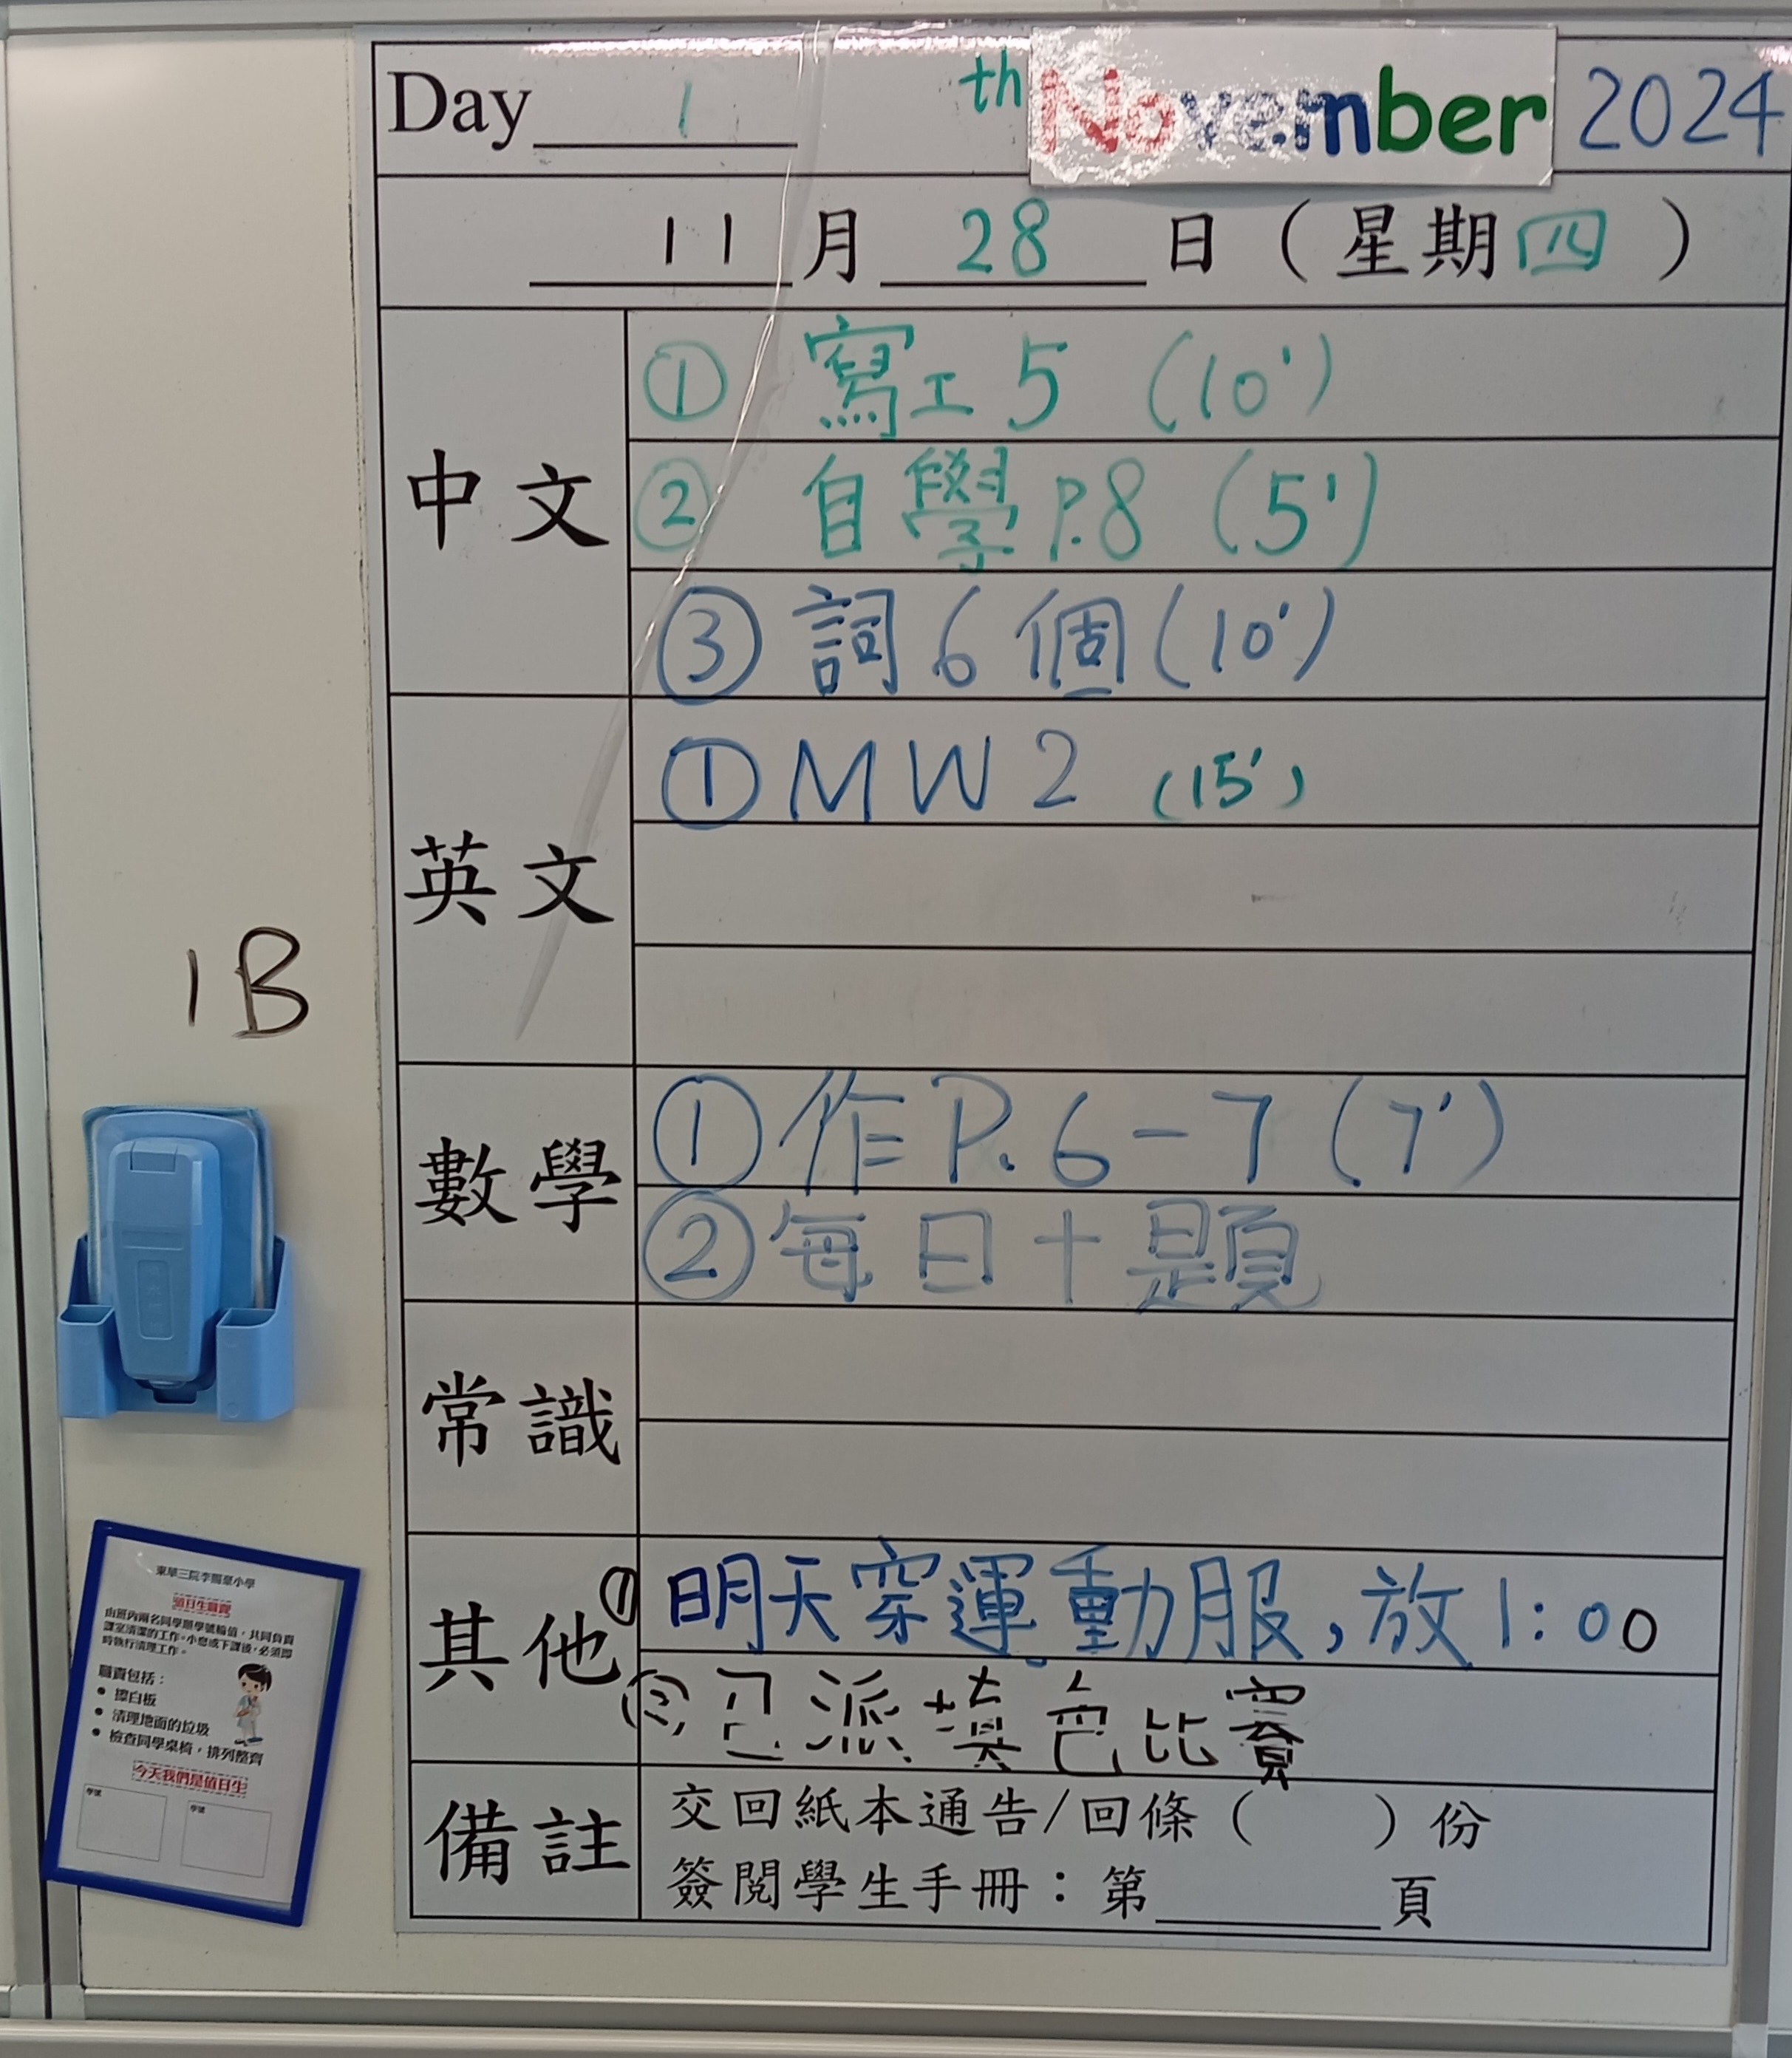 Day 1 th November 2024
11 月 28 日 ( 星期四 )
中文
① 寫工5 (10')
② 自學P.8 (5')
③ 詞6個(10')
英文
① MW2 (15')
數學
① 作P.6-7 (7')
② 每日十題
常識
其他
① 明天穿運動服,放1:00
② 已派填色比賽
備註
交回紙本通告/回條( )份
簽閱學生手冊:第____頁
1B
值日生職責
由班內兩名同學順學號輪值,共同負責
課室清潔的工作。小息或下課後,必須即
時執行清理工作。
職責包括:
• 擦白板
• 清理地面的垃圾
• 檢查同學桌椅,排列整齊
今天我們是值日生
學號 學號